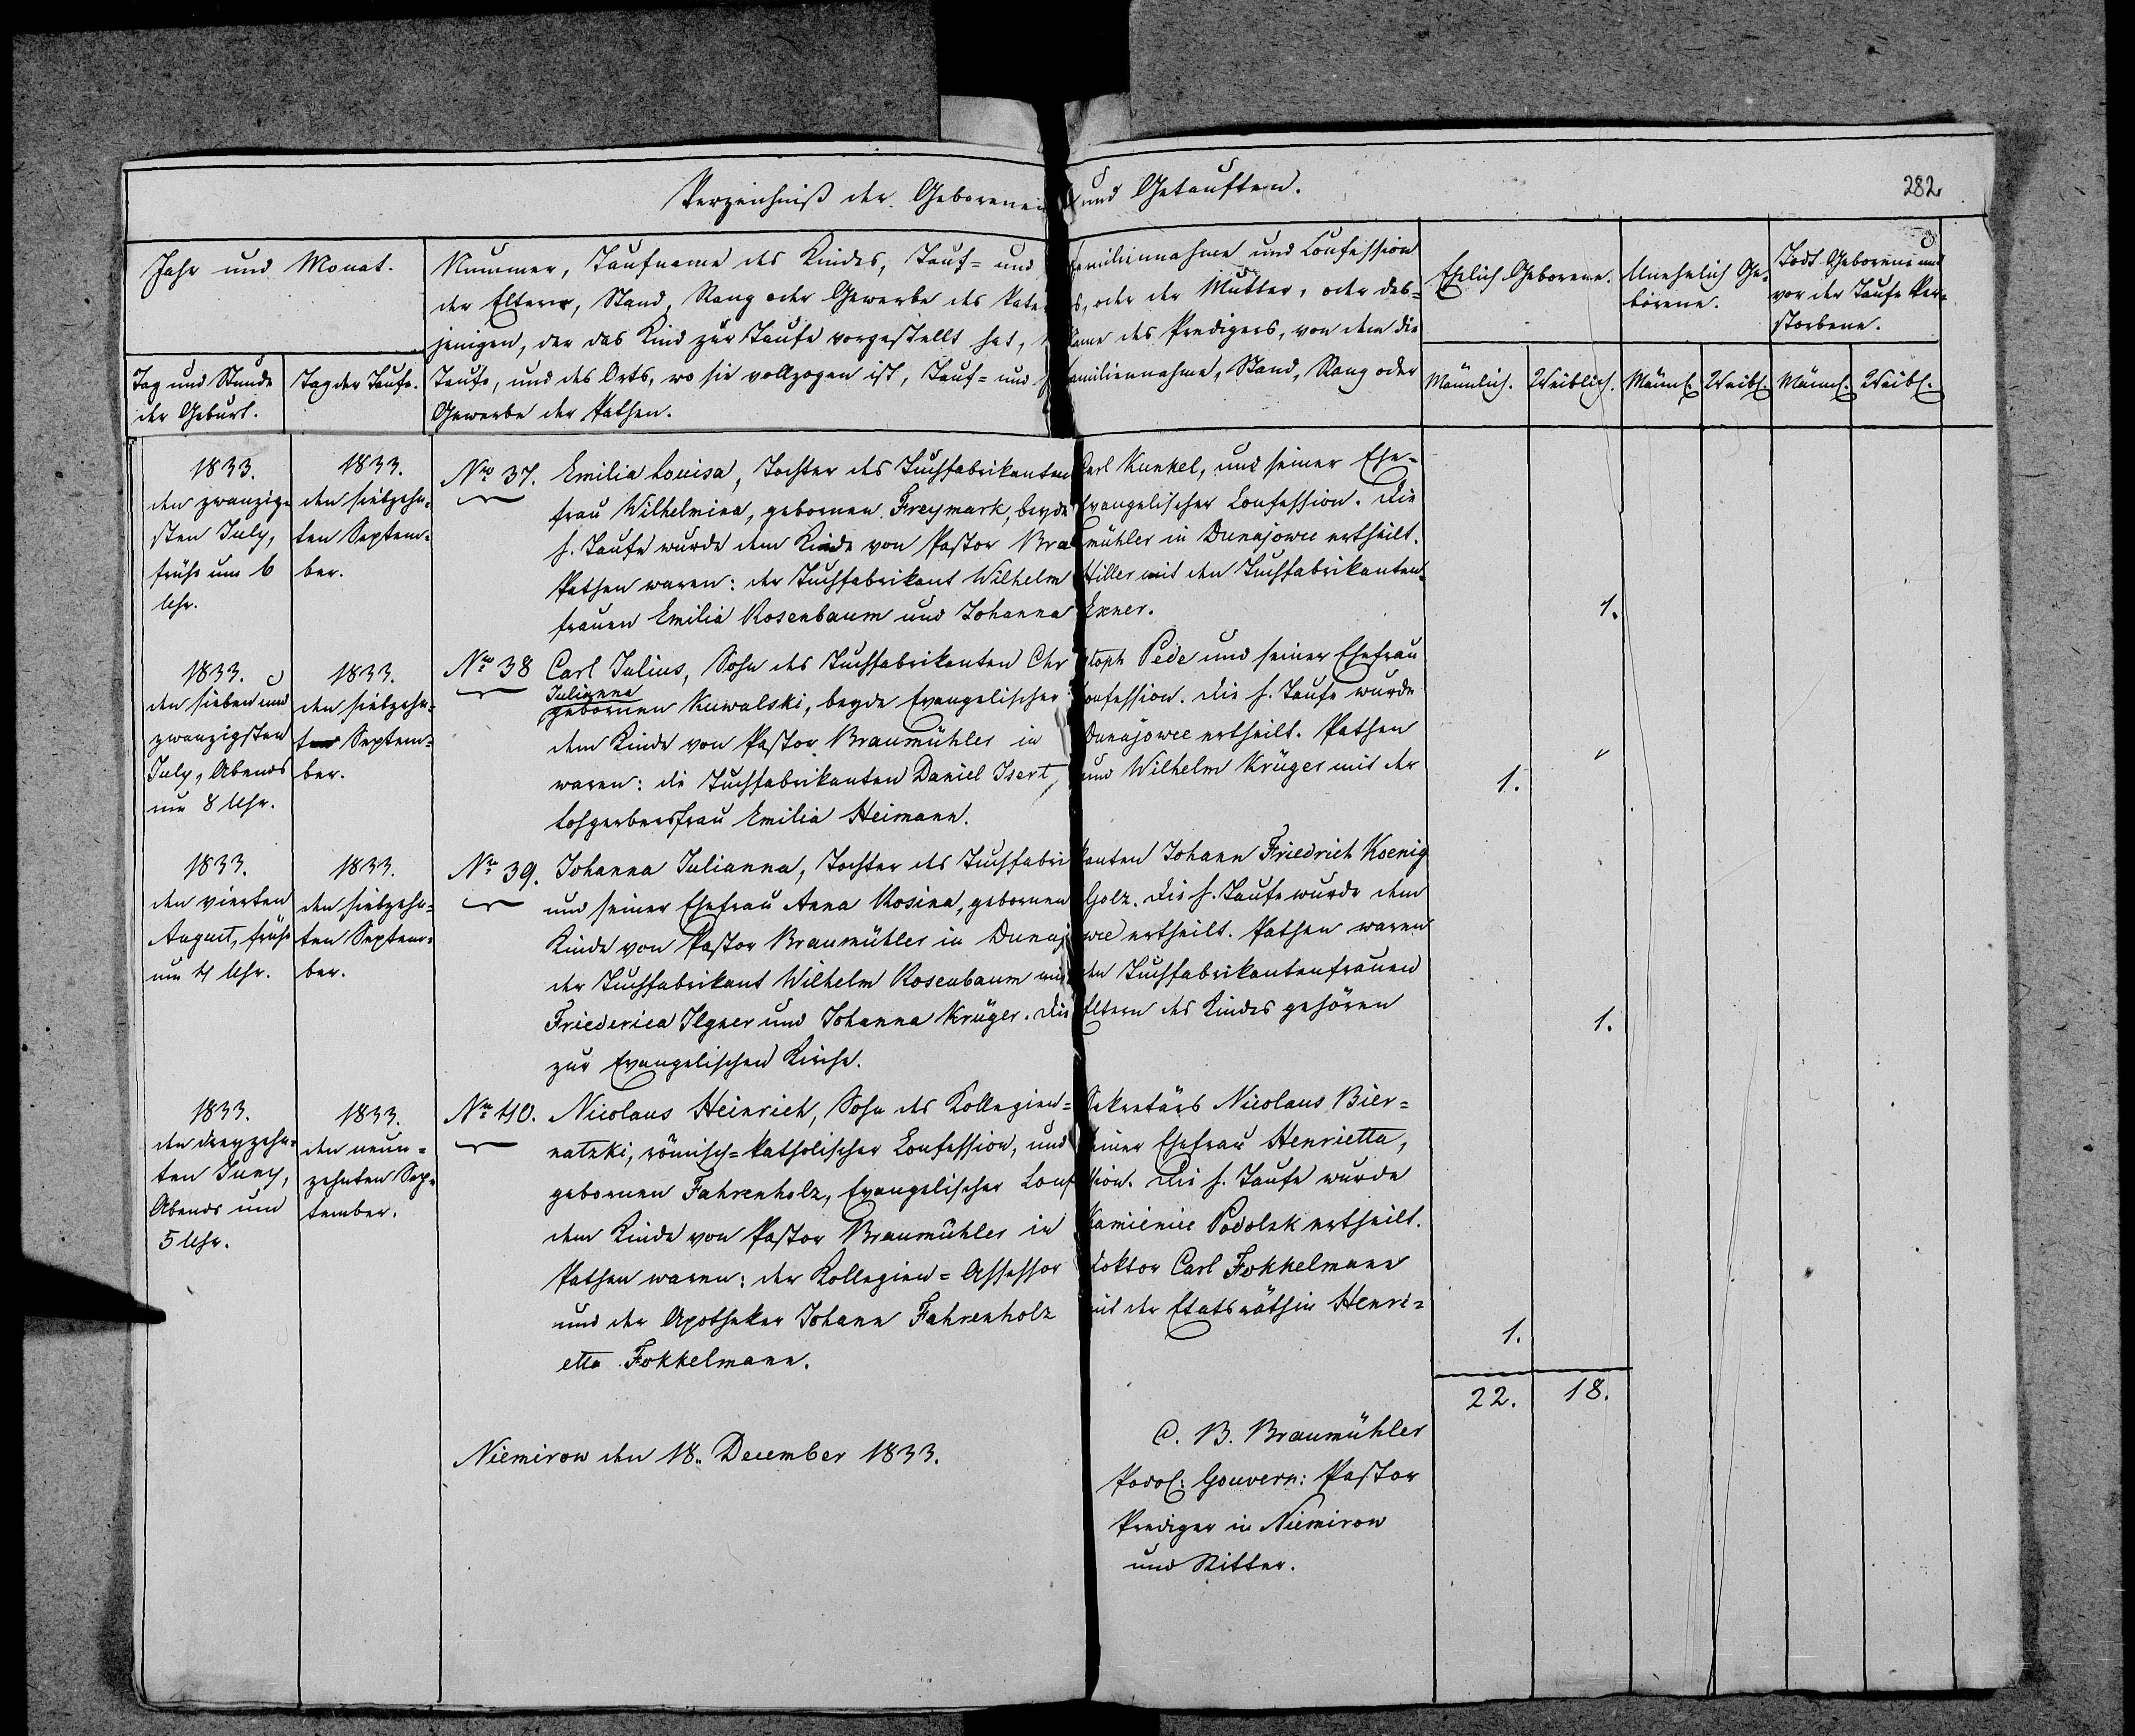 Verzeichniß der Geborenen und Getauften.
282
Jahr und Monat.
Nummer, Taufname des Kindes, Tauf- und Familiennahme und Confession
der Eltern, Stand, Rang oder Gewerbe des Vaters, oder der Mutter, oder des-
jenigen, der das Kind zur Taufe vorgestellt hat, Name des Predigers, von dem die
Taufe, und des Orts, wo sie vollzogen ist, Tauf- und Familiennahme, Stand, Rang oder
Gewerbe der Pathen.
Tag und Stunde
der Geburt.
Tag der Taufe.
Ehlich Geborene.
Unehelich Ge-
borene.
Todt Geborene und
vor der Taufe Ver-
storbene.
Männlich. Weiblich. Männl. Weibl. Männl. Weibl.
1833.
den zwanzig-
sten July,
früh um 6
Uhr.
1833.
den siebzehn-
ten Septem-
ber.
Nro 37. Emilia Louisa, Tochter des Tuchfabrikanten Carl Kunkel, und seiner Ehe-
frau Wilhelmina, gebornen Freymark, beyde Evangelischer Confession. Die
h. Taufe wurde dem Kinde von Pastor Bra mühler in Dunajowce ertheilt.
Pathen waren: der Tuchfabrikant Wilhelm Hiller mit den Tuchfabrikanten-
frauen Emilia Rosenbaum und Johanna Exner.
1.
1833.
den sieben und
zwanzigsten
July, Abends
um 8 Uhr.
1833.
den siebzehn-
ten Septem-
ber.
Nro 38 Carl Julius, Sohn des Tuchfabrikanten Chr stoph Pede und seiner Ehefrau
Julianna
gebornen Kuwalski, beyde Evangelischer Confession. Die h. Taufe wurde
dem Kinde von Pastor Braumühler in Dunajowce ertheilt. Pathen
waren: die Tuchfabrikanten Daniel Isert, und Wilhelm Krüger mit der
Lohgerbersfrau Emilia Heimann.
1.
1833.
den vierten
August, früh
um 4 Uhr.
1833.
den siebzehn-
ten Septem-
ber.
Nro 39. Johanna Julianna, Tochter des Tuchfabrikanten Johann Friedrich Koenig
und seiner Ehefrau Anna Rosina, gebornen Golz. Die h. Taufe wurde dem
Kinde von Pastor Braumühler in Dunajowce ertheilt. Pathen waren
der Tuchfabrikant Wilhelm Rosenbaum mit den Tuchfabrikantenfrauen
Friederica Ilgner und Johanna Krüger. Die Eltern des Kindes gehören
zur Evangelischen Kirche.
1.
1833.
den dreyzehn-
ten Juny,
Abends um
5 Uhr.
1833.
den neun-
zehnten Sep-
tember.
Nro 40. Nicolaus Heinrich, Sohn des Kollegien-Sekretärs Nicolaus Bier-
natzki, römisch-katholischer Confession, und seiner Ehefrau Henrietta,
gebornen Fahrenholz, Evangelischer Confession. Die h. Taufe wurde
dem Kinde von Pastor Braumühler in Kamieniec Podolsk ertheilt.
Pathen waren: der Kollegien-Assessor Doktor Carl Fokkelmann
und der Apotheker Johann Fahrenholz mit der Etatsräthin Henri-
etta Fokkelmann.
1.
22. 18.
Niemirow den 18. December 1833.
C. B. Braumühler
Podol: Gouvern: Pastor
Prediger in Niemirow
und Ritter.